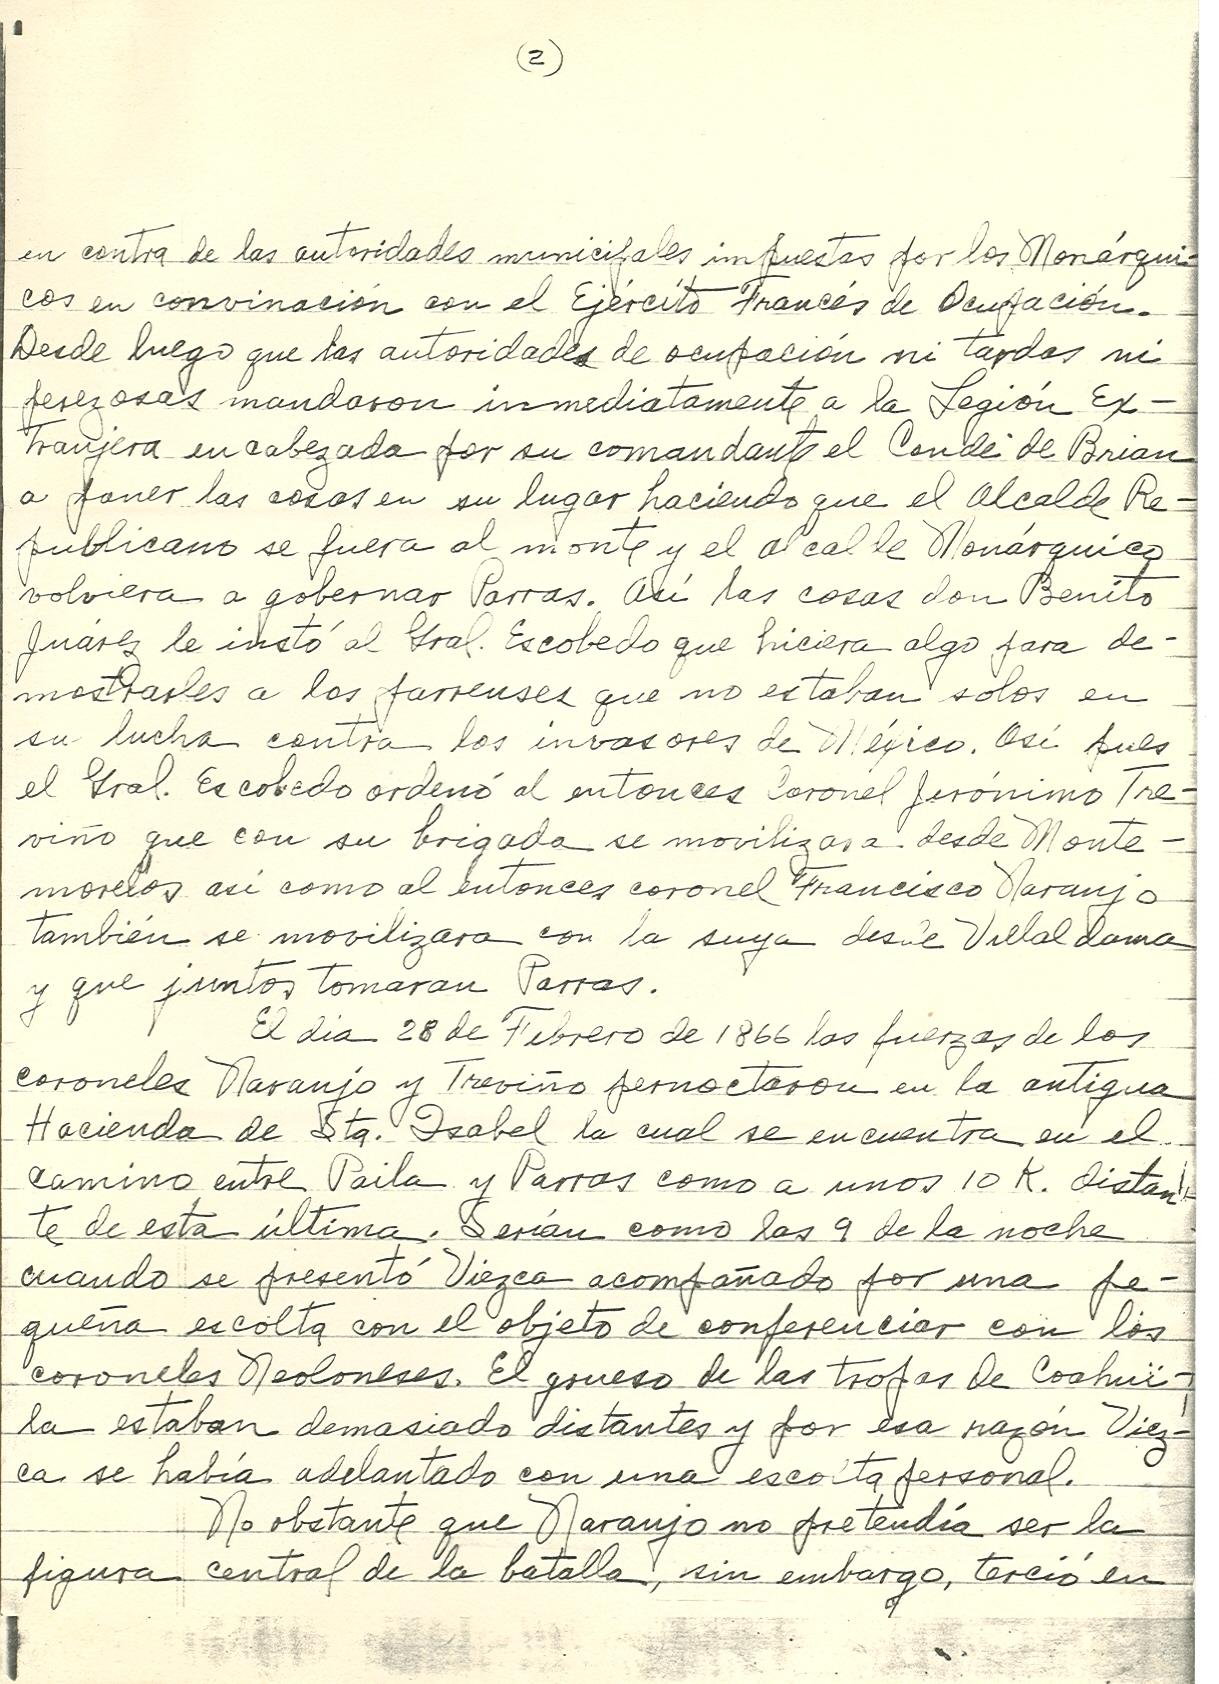 (2)
en contra de las autoridades municipales impuestas por los Monárqui-
cos en convinación con el Ejército Francés de Ocupación.
Desde luego que las autoridades de ocupación ni tardas ni
perezosas mandaron inmediatamente a la Legión Ex-
tranjera encabezada por su comandante el Conde de Brian
a poner las cosas en su lugar haciendo que el Alcalde Re-
publicano se fuera al monte y el alcalde Monárquico
volviera a gobernar Parras. Así las cosas don Benito
Juárez le instó al Gral. Escobedo que hiciera algo para de-
mostrarles a los parrenses que no estaban solos en
su lucha contra los invasores de México. Así pues
el Gral. Escobedo ordenó al entonces Coronel Jerónimo Tre-
viño que con su brigada se movilizara desde Monte-
morelos así como al entonces coronel Francisco Naranjo
también se movilizara con la suya desde Villaldama
y que juntos tomaran Parras.
El dia 28 de Febrero de 1866 las fuerzas de los
coroneles Naranjo y Treviño pernoctaron en la antigua
Hacienda de Sta. Isabel la cual se encuentra en el
camino entre Paila y Parras como a unos 10 K. distan-
te de esta última. Serían como las 9 de la noche
cuando se presentó Viezca acompañado por una pe-
queña escolta con el objeto de conferenciar con los
coroneles Neoloneses. El grueso de las tropas de Coahui-
la estaban demasiado distantes y por esa razón Viez-
ca se había adelantado con una escolta personal.
No obstante que Naranjo no pretendía ser la
figura central de la batalla, sin embargo, terció en